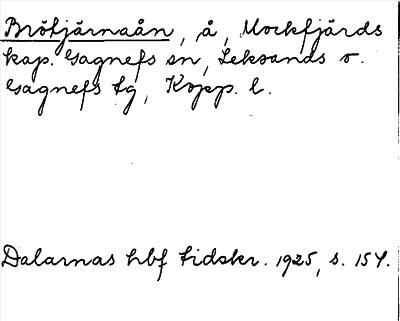 Brötjärnaån, å, Mockfjärds
kap. Gagnefs sn, Leksands o.
Gagnefs tg, Kopp. l.
Dalarnas hbf tidskr. 1925, s. 154.